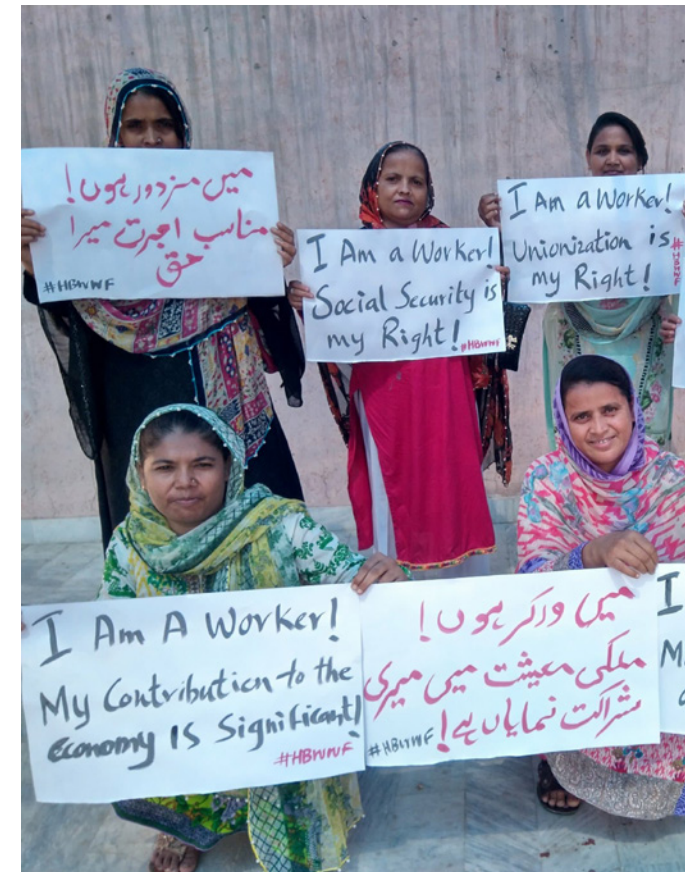 میں مزدور ہوں!
مناسب اجرت میرا
حق
#HBWWF
I Am a Worker!
Social Security is
my Right!
#HBWWF
I Am a Worker!
Unionization is
my Right!
#HBWWF
I Am A Worker!
My Contribution to the
Economy Is Significant!
#HBWWF
میں ورکر ہوں!
ملکی معیشت میں میری
شراکت نمایاں ہے!
#HBWWF
I
M